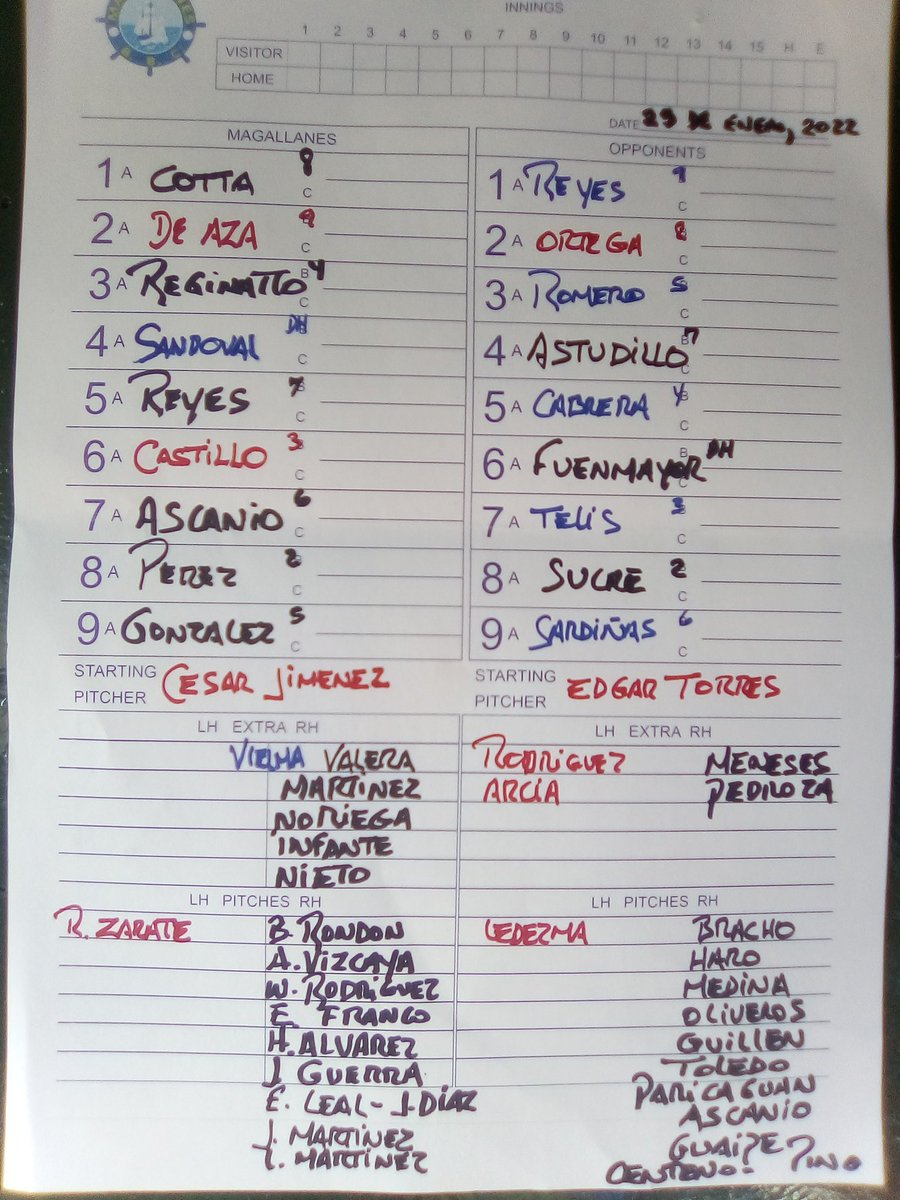 INNINGS
1 2 3 4 5 6 7 8 9 10 11 12 13 14 15 H E
VISITOR
HOME
DATE 29 DE ENERO, 2022
MAGALLANES
1 A COTTA 8 C
2 A DE AZA 9 C
3 A REGINATTO B 4 C
4 A SANDOVAL DH C
5 A REYES 7 C
6 A CASTILLO 3 C
7 A ASCANIO 6 C
8 A PEREZ 2 C
9 A GONZALEZ 5 C
STARTING PITCHER CESAR JIMENEZ
LH EXTRA RH
VIELMA VALERA
MARTINEZ
NORIEGA
INFANTE
NIETO
LH PITCHES RH
R. ZARATE B. RONDON
A. VIZCAYA
W. RODRIGUEZ
E. FRANCO
H. ALVAREZ
J. GUERRA
E. LEAL - J. DIAZ
J. MARTINEZ
L. MARTINEZ
OPPONENTS
1 A REYES 9 C
2 A ORTEGA 8 C
3 A ROMERO 5 C
4 A ASTUDILLO B 7 C
5 A CABRERA 4 B C
6 A FUENMAYOR B DH C
7 A TELIS 3 C
8 A SUCRE 2 C
9 A SARDIÑAS 6 C
STARTING PITCHER EDGAR TORRES
LH EXTRA RH
RODRIGUEZ MENESES
ARCIA PEDROZA
LH PITCHES RH
LEDEZMA BRACHO
HARO
MEDINA
OLIVEROS
GUILLEN
TOLEDO
PARICAGUAN
ASCANIO
GUAIPE
CENTENO - PINO